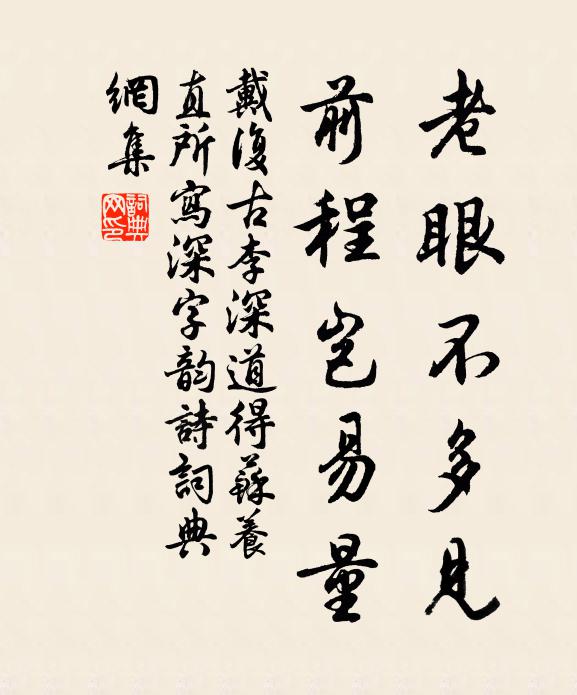 老眼不多見
前程豈易量
戴復古李深道得蘇養
直所寫深字韵詩詞典
網集
詞典网印